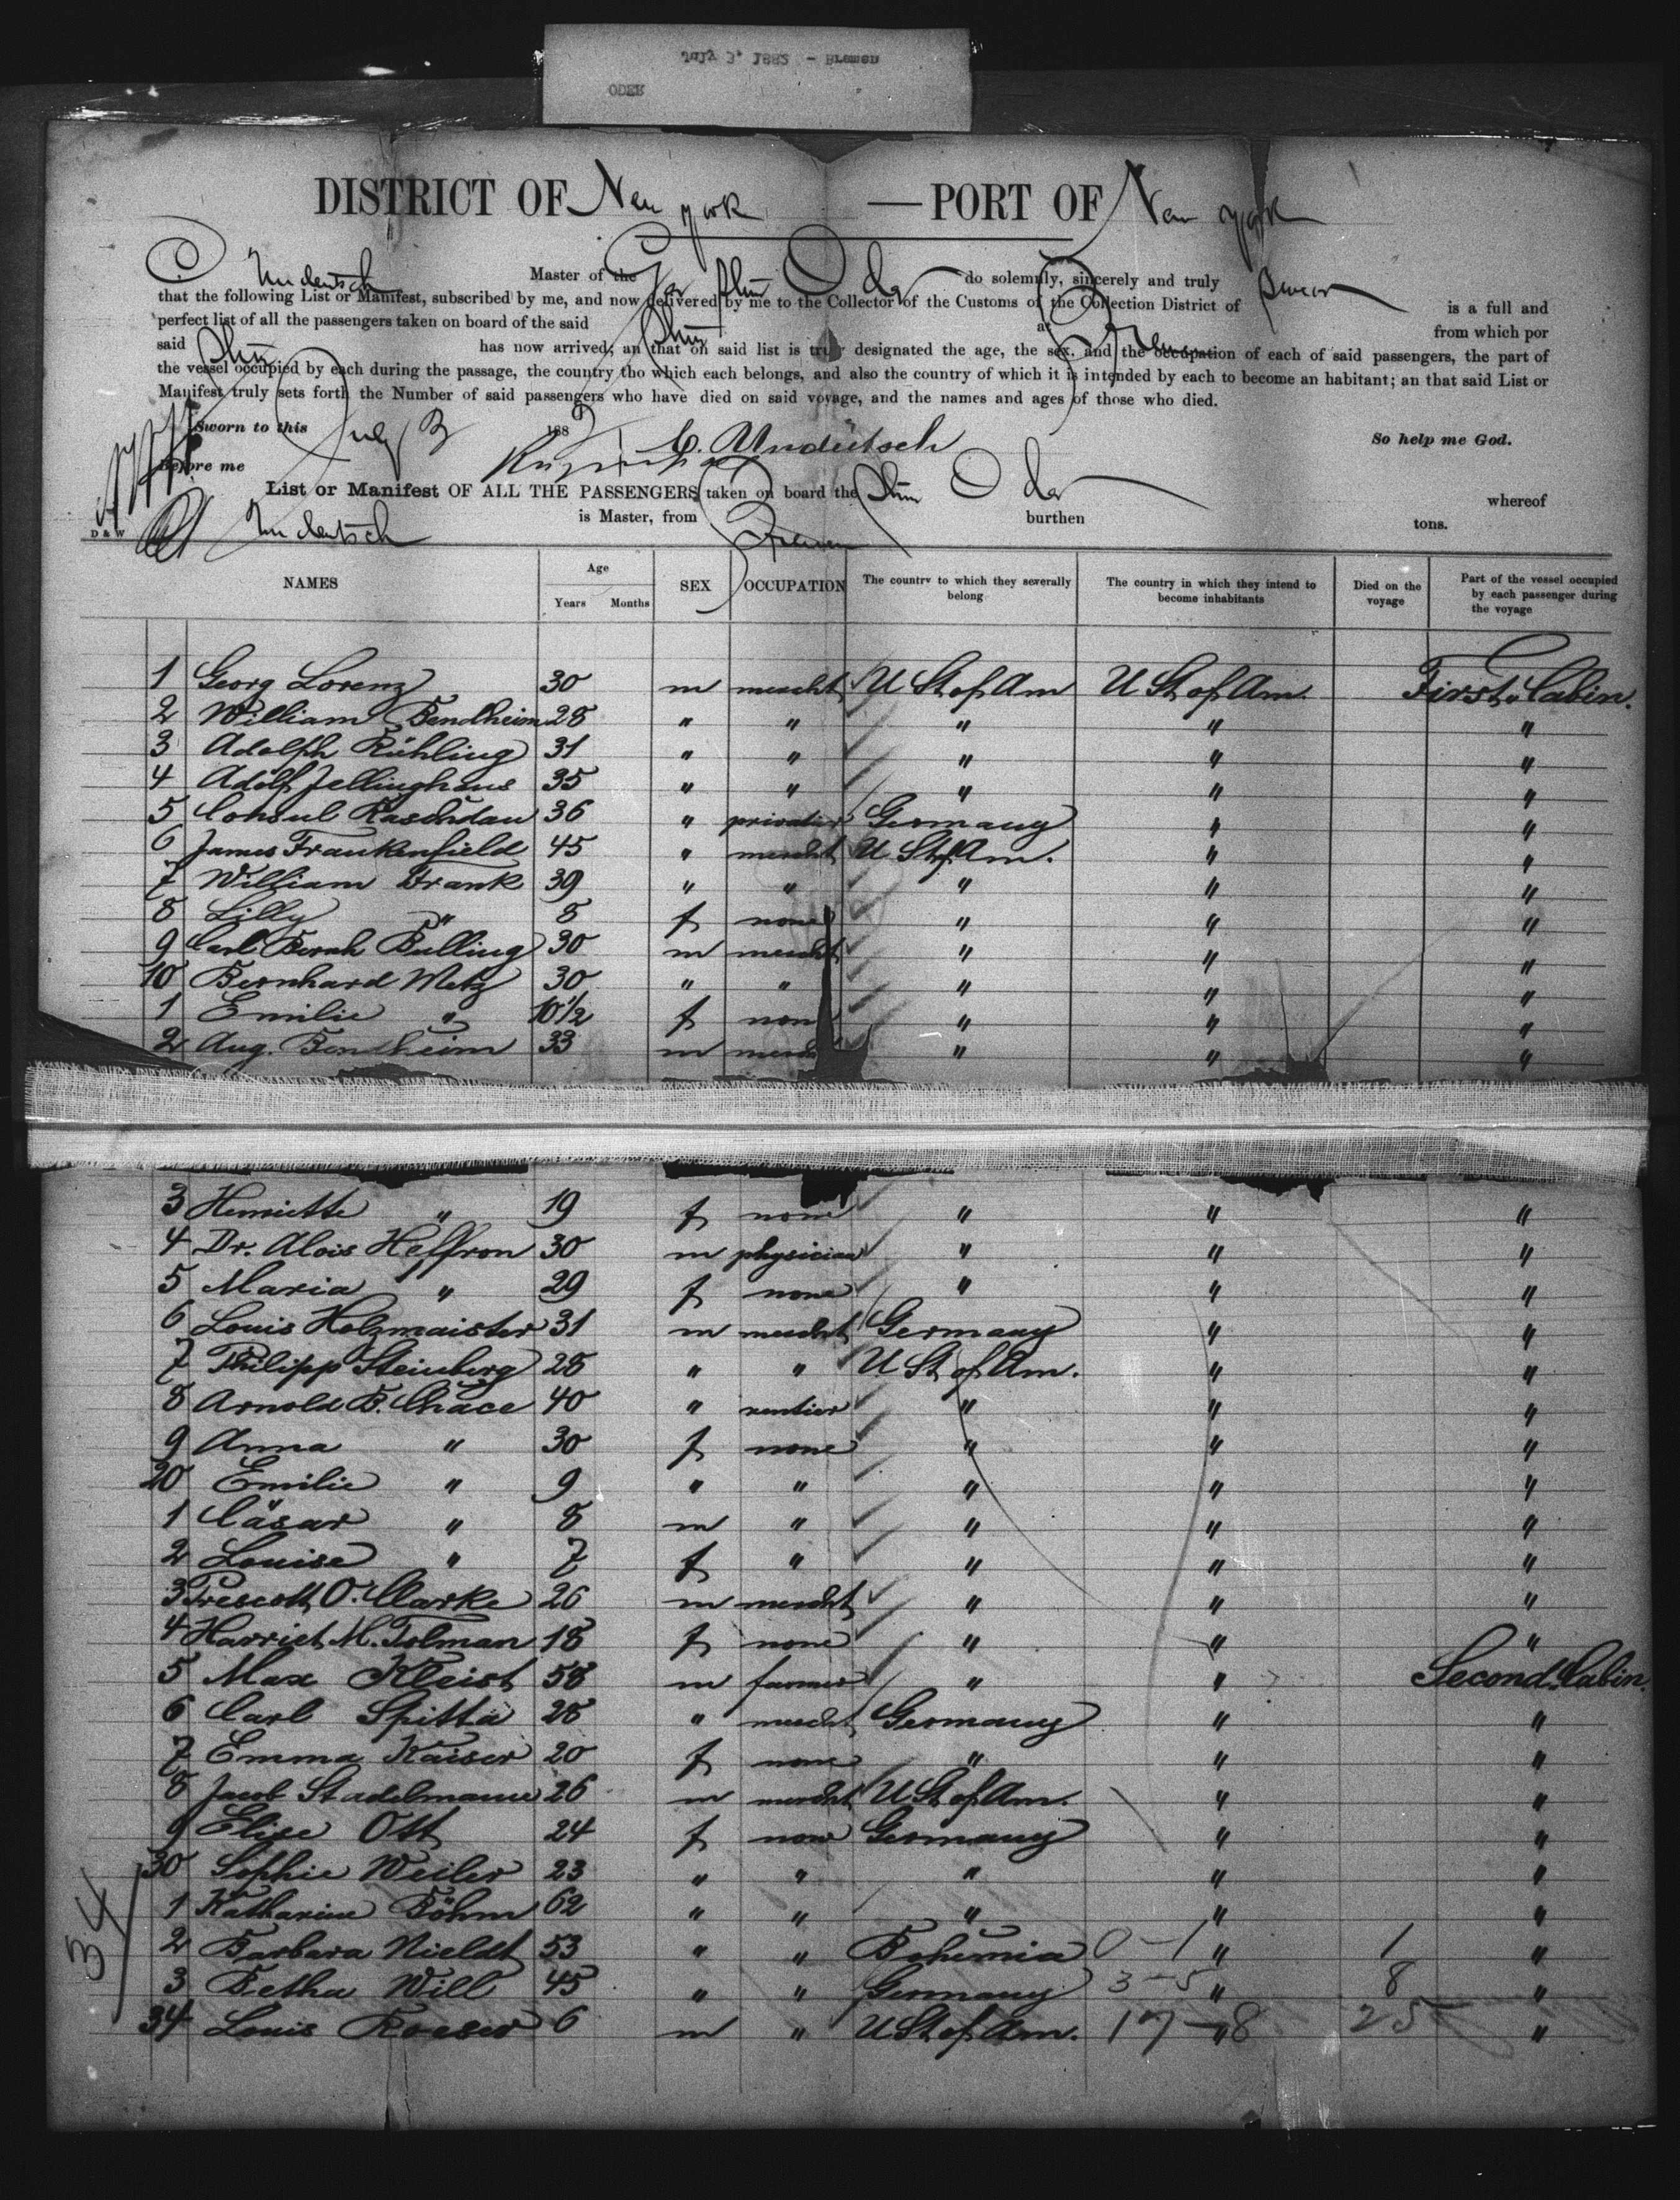 July 3, 1882 - Bremen
ODER
DISTRICT OF New York — PORT OF New York
C Undeutsch Master of the Ger Shm Oder do solemnly, sincerely and truly swear
that the following List or Manifest, subscribed by me, and now delivered by me to the Collector of the Customs of the Collection District of is a full and
perfect list of all the passengers taken on board of the said Shm at Bremen from which por
said Shm has now arrived; an that on said list is truly designated the age, the sex, and the occupation of each of said passengers, the part of
the vessel occupied by each during the passage, the country tho which each belongs, and also the country of which it is intended by each to become an habitant; an that said List or
Manifest truly sets forth the Number of said passengers who have died on said voyage, and the names and ages of those who died.
Sworn to this July 3 1882 So help me God.
C. Undeutsch
Before me
List or Manifest OF ALL THE PASSENGERS taken on board the Shm Oder whereof
D & W Undeutsch is Master, from Bremen burthen tons.
NAMES Age Years Months SEX OCCUPATION The country to which they severally belong The country in which they intend to become inhabitants Died on the voyage Part of the vessel occupied by each passenger during the voyage
1 Georg Lorenz 30 m mercht U St of Am U St of Am. First Cabin.
2 William Bendheim 28 " " " " "
3 Adolph Rühling 31 " " " " "
4 Adolf Jellinghaus 35 " " " " "
5 Consul Raschdau 36 " privatier Germany " "
6 James Frankenfield 45 " mercht U St of Am. " "
7 William Frank 39 " " " " "
8 Lilly " 8 f none " " "
9 Carl Bernh Bulling 30 m mercht " " "
10 Bernhard Metz 30 " " " " "
1 Emilie " 10 1/2 f none " " "
2 Aug. Bendheim 33 m mercht " " "
3 Henriette " 19 f none " " "
4 Dr. Alois Heffron 30 m physician " " "
5 Maria " 29 f none " " "
6 Louis Holzmaister 31 m mercht Germany " "
7 Philipp Steinberg 28 " " U St of Am. " "
8 Arnold B. Chace 40 " rentier " " "
9 Anna " 30 f none " " "
20 Emilie " 9 " " " " "
1 Cäsar " 8 m " " " "
2 Louise " 7 f " " " "
3 Prescott O. Clarke 26 m mercht " " "
4 Harriet M. Tolman 18 f none " " "
5 Max Kleist 58 m farmer " " Second Cabin.
6 Carl Spitta 28 " mercht Germany " "
7 Emma Kaiser 20 f none " " "
8 Jacob Stadelmann 26 m mercht U St of Am. " "
9 Elise Ott 24 f none Germany " "
30 Sophie Weiler 23 " " " " "
1 Katharine Böhm 62 " " " " "
2 Barbara Nieldt 53 " " Bohemia 0-1 " 1 "
3 Betha Will 45 " " Germany 3-5 " 8 "
34 Louis Roeser 6 m " U St of Am. 17-8 " 25 "
34